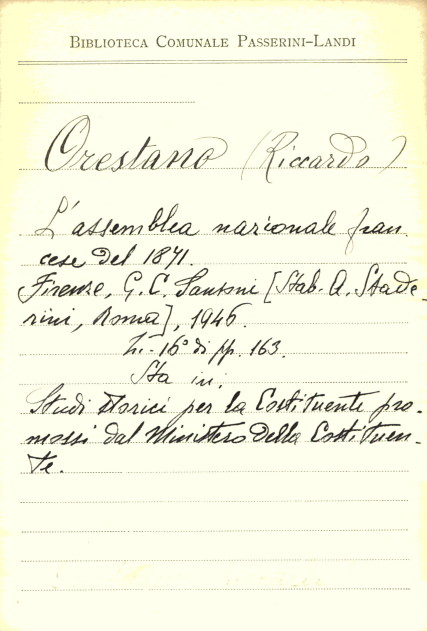 BIBLIOTECA COMUNALE PASSERINI-LANDI
Orestano (Riccardo)
L'assemblea nazionale fran
cese del 1871.
Firenze, G. C. Sansoni [Stab. A. Stade-
rini, Roma], 1946.
in-16° di pp. 163.
Sta in:
Studi storici per la Costituente pro-
mossi dal Ministero della Costituen-
te.